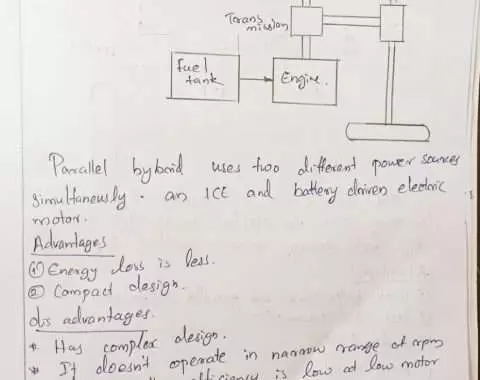 Trans
mission
fuel
tank
Engine.
Parallel hybrid uses two different power sources
simultaneusly. an ICE and battery driven electric
motor.
Advantages
① Energy loss is less.
② Compact design.
dis advantages.
* Has complex design.
* It doesn't operate in narrow range of rpm
efficiency is low at low motor